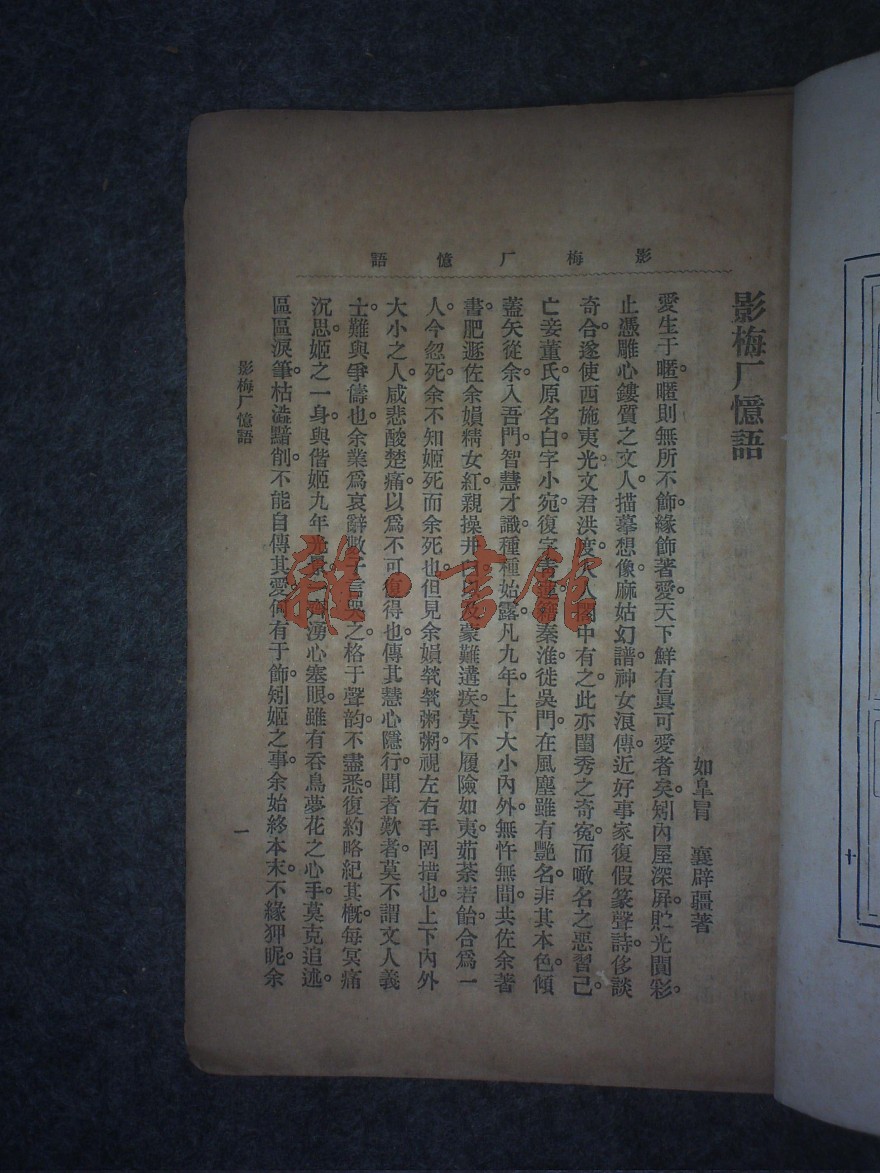 影梅厂憶語
影梅厂憶語
如皐冒　襄辟疆著
愛生于暱。暱則無所不飾。緣飾著愛。天下鮮有眞可愛者矣。矧內屋深屏。貯光闃彩。
止憑雕心鏤質之文人。描摹想像。麻姑幻譜。神女浪傳。近好事家復假篆聲詩。侈談
奇合。遂使西施夷光文君洪度。人人閣中有之。此亦閨秀之奇寃。而噉名之惡習已。
亡妾董氏。原名白。字小宛。復字靑蓮。籍秦淮。徙吳門。在風塵雖有艷名。非其本色。傾
蓋矢從余。入吾門。智慧才識。種種始露。凡九年。上下大小。內外無忤無間。共佐余著
書肥遯。佐余婦精女紅。親操井臼。以及蒙難遘疾。莫不履險如夷。茹荼若飴。合爲一
人。今忽死。余不知姬死而余死也。但見余婦煢煢粥粥。視左右手罔措也。上下內外
大小之人。咸悲酸楚痛。以爲不可復得也。傳其慧心隱行。聞者歎者。莫不謂文人義
士難與爭儔也。余業爲哀辭數千言哭之。格于聲韵。不盡悉。復約略紀其槪。每冥痛
沉思姬之一身。與偕姬九年光景。一齊湧心塞眼。雖有吞鳥夢花之心手。莫克追述。
區區淚筆。枯澁黯削。不能自傳其愛。何有于飾。矧姬之事余。始終本末。不緣狎昵。余
影梅厂憶語
一
雜·書館